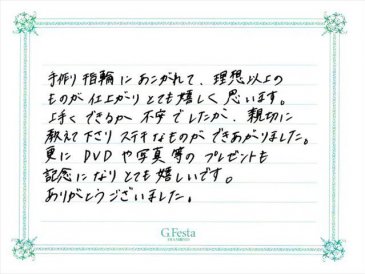 手作り指輪にあこがれて、理想以上の
ものが仕上がりとても嬉しく思います。
上手くできるか不安でしたが、親切に
教えて下さりステキなものができあがりました。
更にDVDや写真等のプレゼントも
記念になりとても嬉しいです。
ありがとうございました。
G.Festa